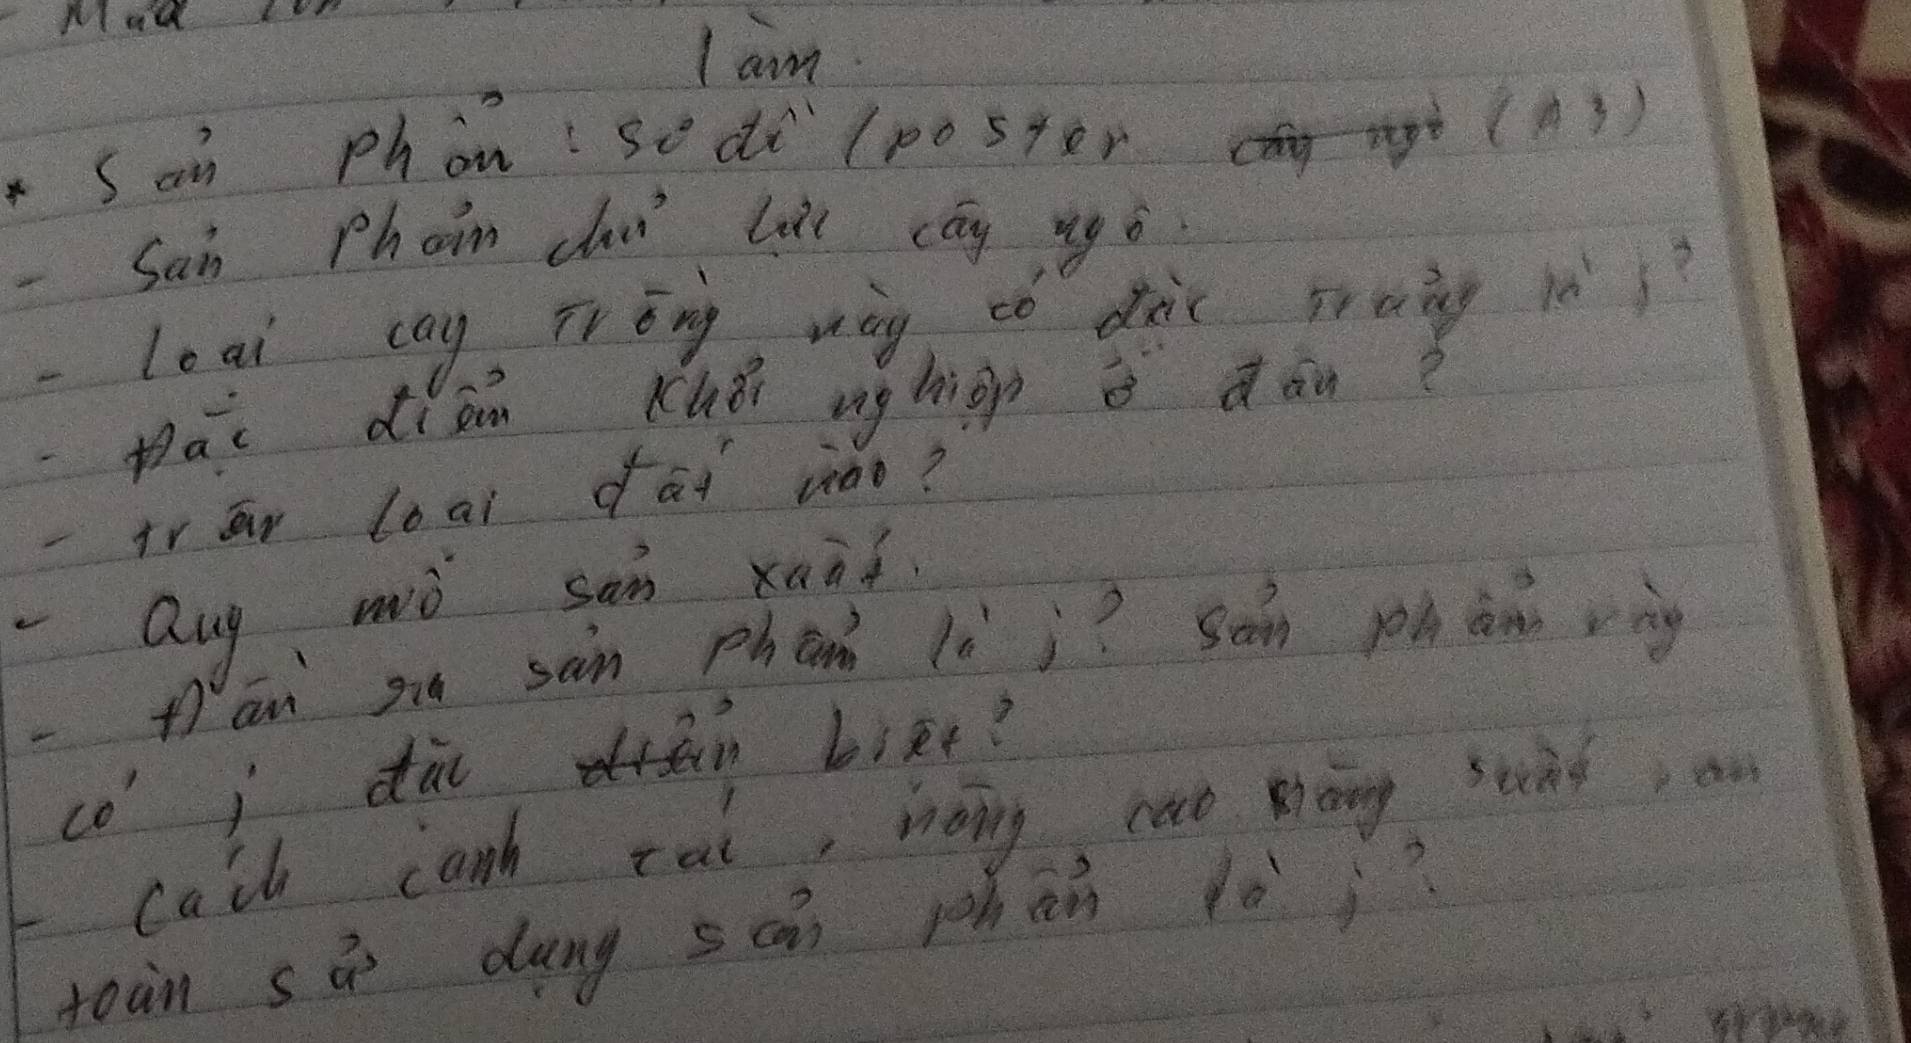 làm.
* Sản phẩn : sơ đồ (poster (A3)
- Sản Phẩm chủ lực cây ngô.
- loại cây Trồng này có đặc Trưng là j?
- Đặc điểm Khởi nghiệp ở đâu ?
- trên loại đất nào?
- Quy mô sản xuất.
- Đầu ra sản phẩm là j? Sản phẩm này
có j đặc biệt?
- Cách canh tác, nâng cao năng suất, an
toàn sử dụng sản phẩn là j?